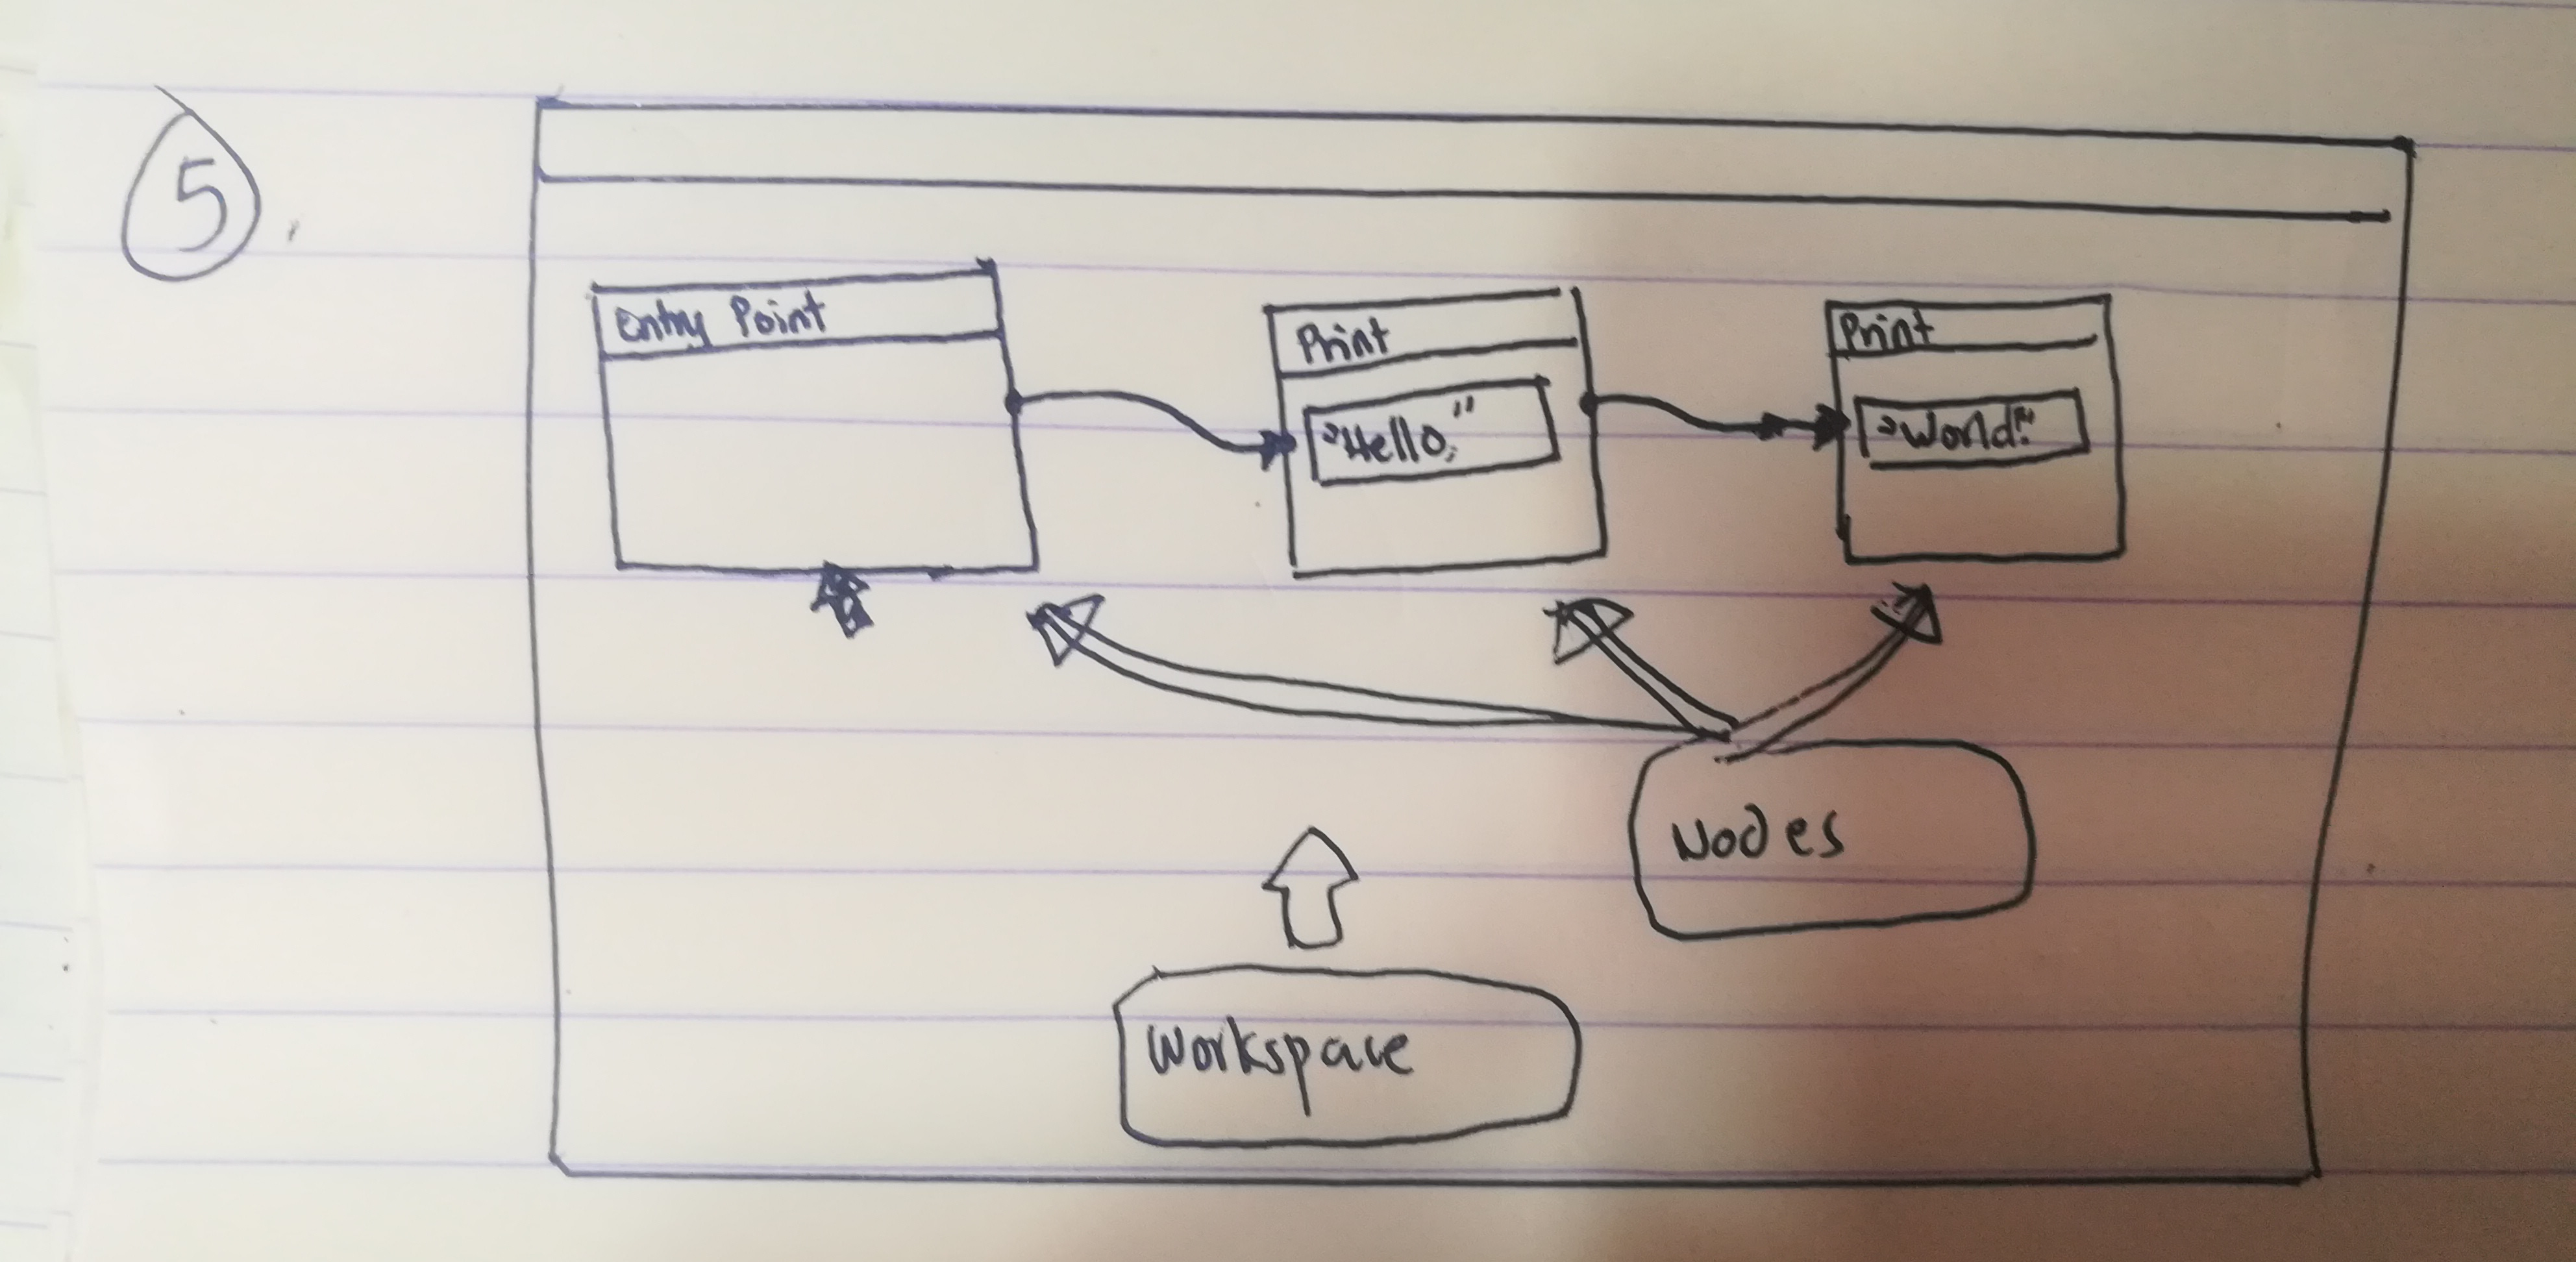 5.
Entry Point
Print
"Hello,"
Print
"World!"
Nodes
Workspace